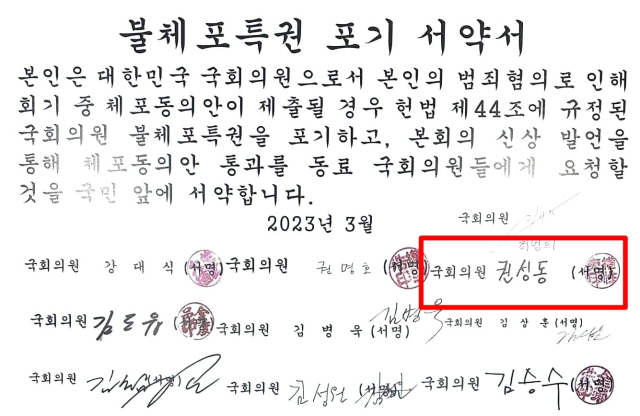 불체포특권 포기 서약서
본인은 대한민국 국회의원으로서 본인의 범죄혐의로 인해
회기 중 체포동의안이 제출될 경우 헌법 제44조에 규정된
국회의원 불체포특권을 포기하고, 본회의 신상 발언을
통해 체포동의안 통과를 동료 국회의원들에게 요청할
것을 국민 앞에 서약합니다.
2023년 3월
국회의원
국회의원 강대식 (서명) 국회의원 권명호 (서명) 국회의원 권성동 (서명)
국회의원 김도읍 국회의원 김병욱 (서명) 김병욱 국회의원 김상훈 (서명)
국회의원 (서명) 국회의원 김성원 국회의원 김승수 (서명)